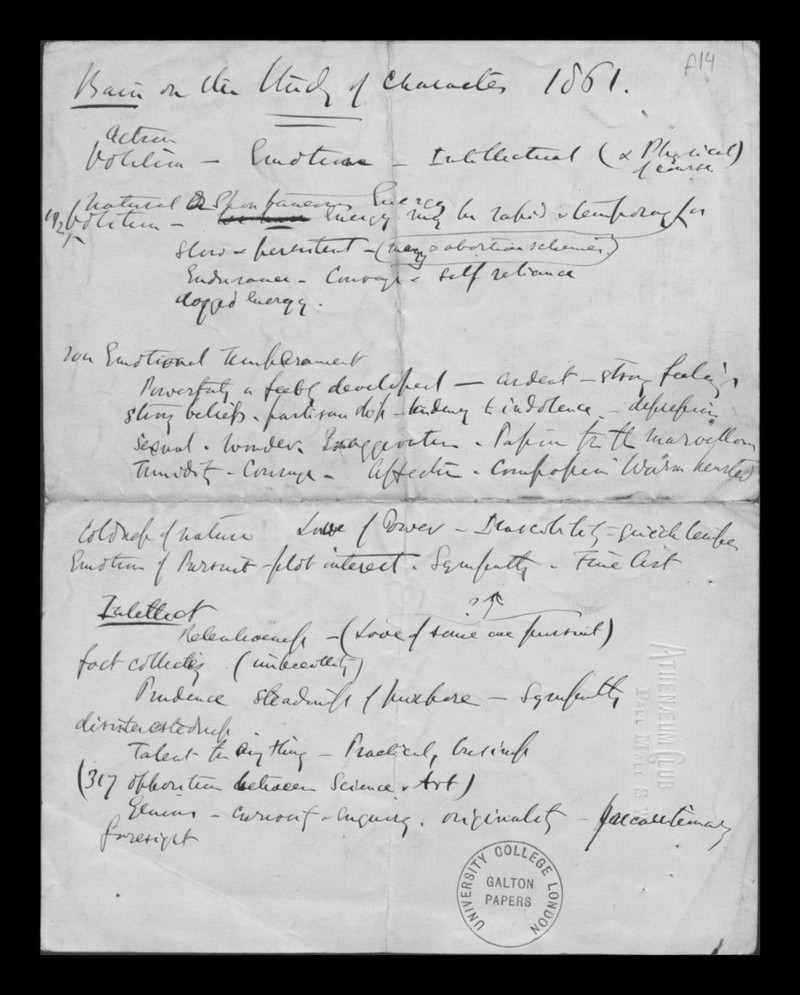 f14
Bain on the Study of Character 1861.
Action
Volition – Emotion – Intellectual (& Physical)
of course
Natural or Spontaneous Energy
192 Volition – Energy may be rapid & temporary or
slow & persistent – (many abortive schemes)
Endurance – Courage & self reliance
dogged energy.
200 Emotional temperament
Powerfully or feebly developed – ardent – strong feelings
strong beliefs. partisanship – tendency to indolence – depression
Sexual. Wonder. Exaggeration. Passion for the marvellous
Timidity – Courage – Affection. Compassion Warm hearted
Coldness of nature Love of Power – Irascibility – quick temper
Emotion of Pursuit – plot interest. Sympathy. Fine Art
? ↑
Intellect
Retentiveness – (Love of some one pursuit)
fact collecting (imbecility)
Prudence steadiness of purpose – Sympathy
disinterestedness
Talent for anything – Practical, business
(317 opposition between Science & Art)
Genius – curiosity – enquiry. originality – precautionary
foresight
ATHENÆUM CLUB
PALL MALL S.W.
UNIVERSITY COLLEGE LONDON
GALTON
PAPERS